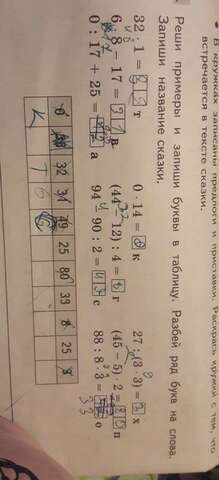 В кружках записаны предлоги и приставки. Раскрась кружки с тем, что
встречается в тексте сказки.
Реши примеры и запиши буквы в таблицу. Разбей ряд букв на слова.
Запиши название сказки.
32 : 1 = 32 т 0 · 14 = 0 к 27 : (3 · 3) = 3 х
6 · 8 − 17 = 31 в (44 − 12) : 4 = 8 г (45 − 5) · 2 = 80 п
0 : 17 + 25 = а 94 − 90 : 2 = 49 с 88 : 8 · 3 = о
0 32 31 49 25 80 33 8 25 3
К Т С